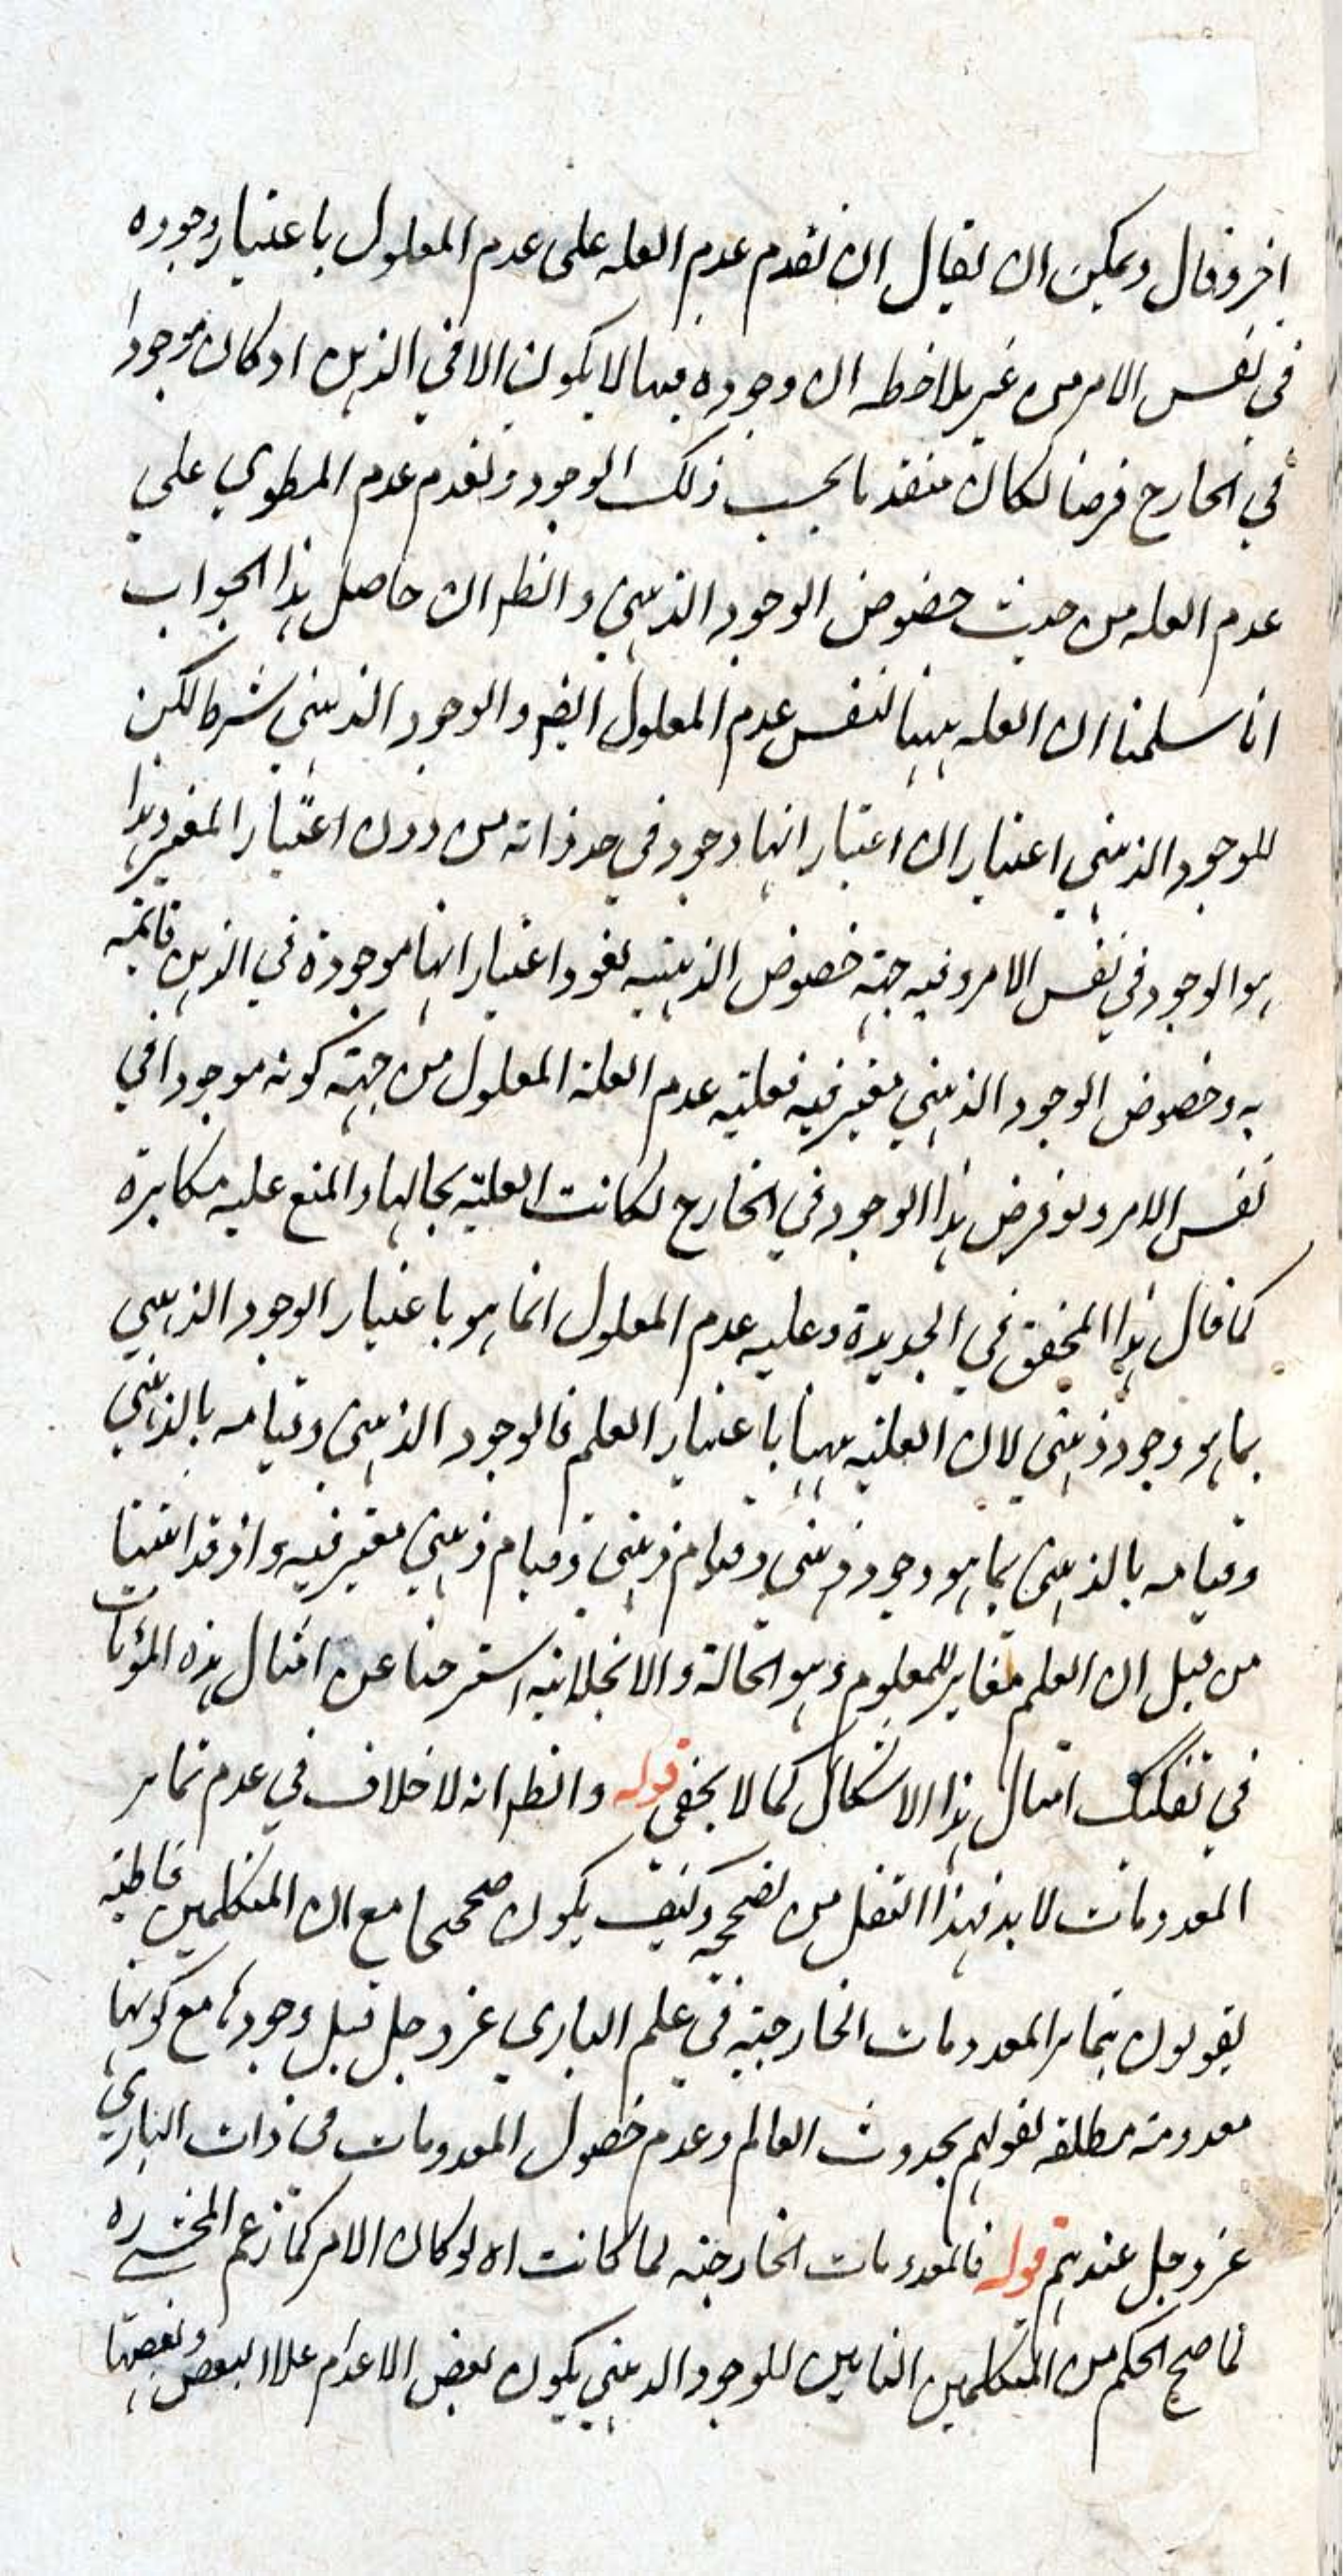 اخر وقال ويمكن ان يقال ان تقدم عدم العله على عدم المعلول باعتبار وجوده
في نفس الامر من غير ملاحظه ان وجوده فيها لا يكون الا في الذهن اذ كان موجودا
في الخارج فرضا لكان متقدما بحسب ذلك الوجود وتقدم عدم المطوي على
عدم العله من حيث خصوص الوجود الذهني والظ ان حاصل هذا الجواب
انا سلمنا ان العله ههنا لنفس عدم المعلول ايضا والوجود الذهني شرط لكن
للوجود الذهني اعتباران اعتبار انها وجود في حد ذاته من دون اعتبار المغير وهذا
هو الوجود في نفس الامر وفيه جهة خصوص الذهنيه لغو واعتبار انها موجودة في الذهن قائمه
به وخصوص الوجود الذهني معتبر فيه فعليه عدم العلة المعلول من جهة كونه موجودا في
نفس الامر ولو فرض هذا الوجود في الخارج لكانت العليه بحالها والمنع عليه مكابرة
كما قال هذا المحقق في الجديدة وعليه عدم المعلول انما هو باعتبار الوجود الذهني
بما هو وجود ذهني لان العليه ههنا باعتبار العلم فالوجود الذهني وقيامه بالذهني
وقيامه بالذهني بما هو وجود ذهني وقيام ذهني وقيام ذهني معتبر فيه واذ قد اثبتنا
من قبل ان العلم مغاير للمعلوم وهو الحالة والانجلائيه استرحنا عن امثال هذه المؤنات
في تفكيك امثال هذا الاشكال كما لا يخفى قوله والظ انه لا خلاف في عدم تمايز
المعدومات لا بد لهذا النقل من تصحيح وكيف يكون صحيحا مع ان المتكلمين قاطبة
يقولون بتمايز المعدومات الخارجية في علم الباري عز وجل قبل وجودها مع كونها
معدومة مطلقه لقولهم بحدوث العالم وعدم حصول المعدومات في ذات الباري
عز وجل عندهم قوله فالمعدومات الخارجية لما كانت اه لو كان الامر كما زعم المحشي ره
لما صح الحكم من المتكلمين النافين للوجود الذهني بكون بعض الاعدام عللا لبعض وبعضها